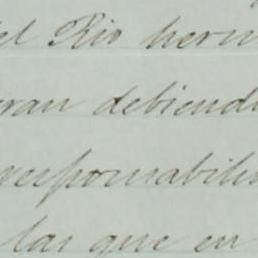 del Rio herm
eran debiendo
responsabilid
las que en